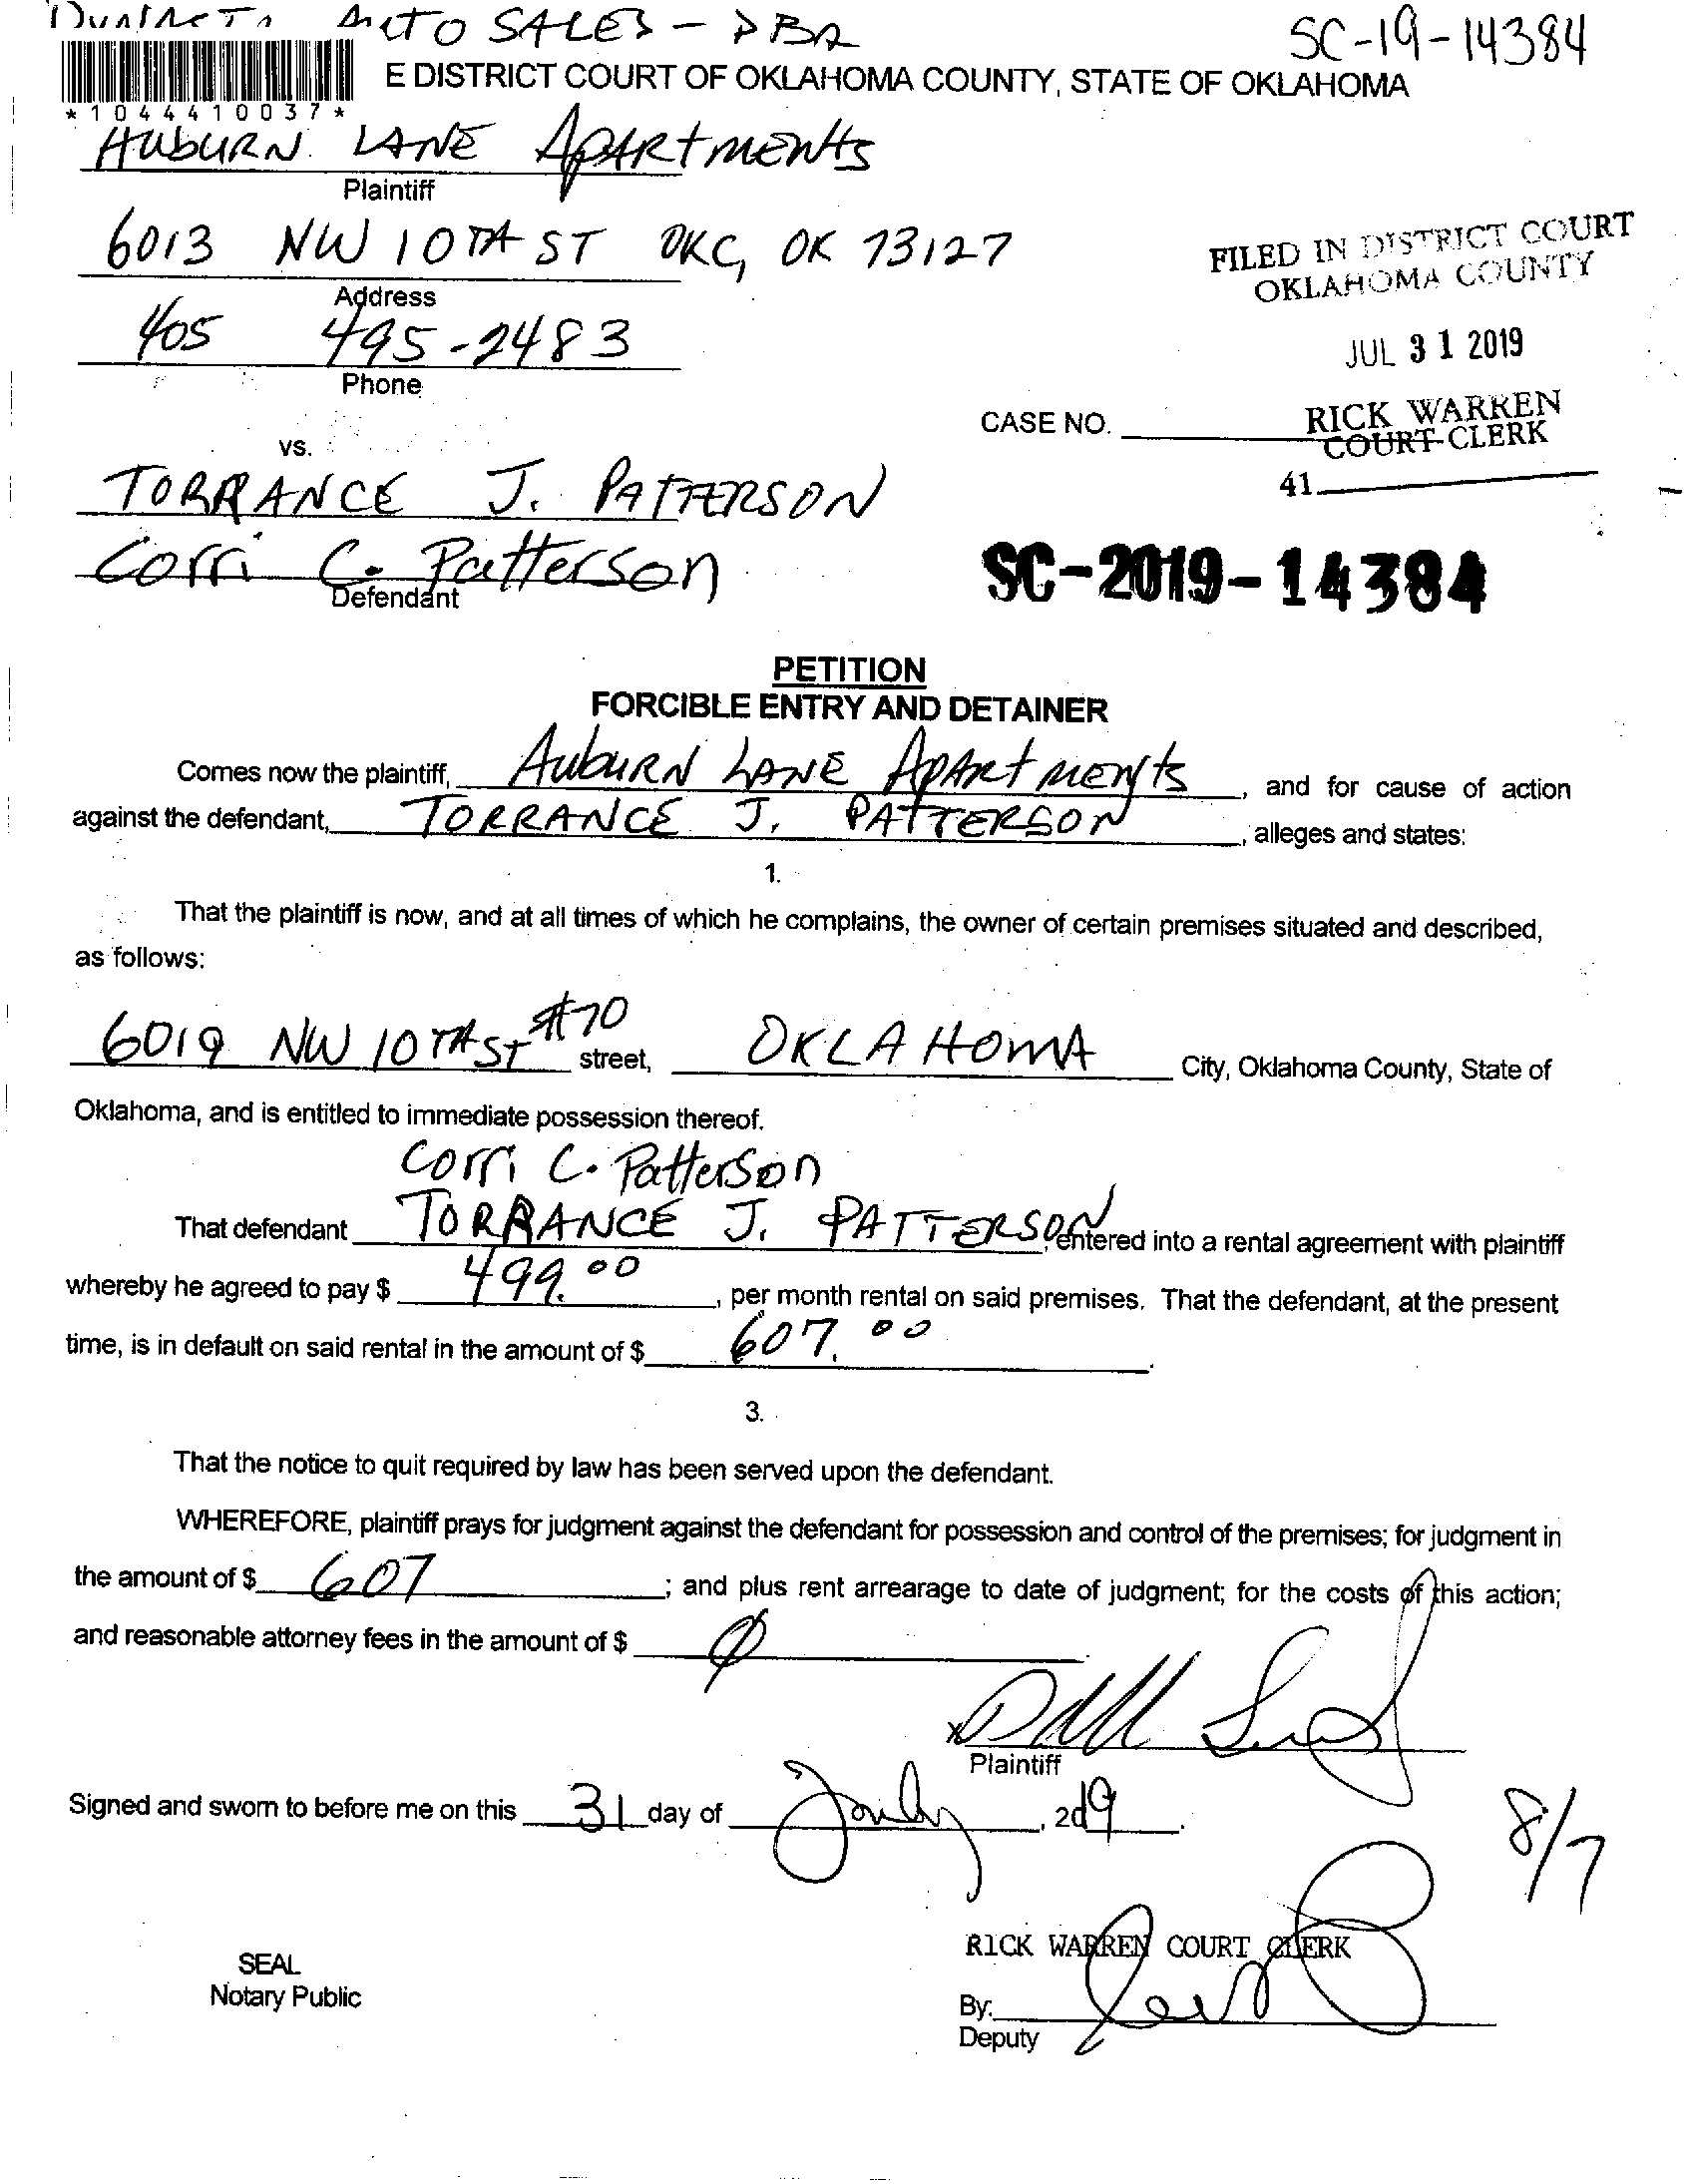 AUTO SALES - DBA
SC-19-14384
E DISTRICT COURT OF OKLAHOMA COUNTY, STATE OF OKLAHOMA
*1044410037*
AUBURN LANE APARTMENTS
Plaintiff
6013 NW 10TH ST OKC, OK 73127
Address
405 495-2483
Phone
FILED IN DISTRICT COURT
OKLAHOMA COUNTY
JUL 31 2019
RICK WARREN
COURT CLERK
41
CASE NO.
vs.
TORRANCE J. PATTERSON
Corri C. Patterson
Defendant
SC-2019-14384
PETITION
FORCIBLE ENTRY AND DETAINER
Comes now the plaintiff, AUBURN LANE APARTMENTS, and for cause of action
against the defendant, TORRANCE J. PATTERSON, alleges and states:
1.
That the plaintiff is now, and at all times of which he complains, the owner of certain premises situated and described,
as follows:
6019 NW 10TH ST #70 street, OKLAHOMA City, Oklahoma County, State of
Oklahoma, and is entitled to immediate possession thereof.
Corri C. Patterson
That defendant TORRANCE J. PATTERSON, entered into a rental agreement with plaintiff
whereby he agreed to pay $ 499.00, per month rental on said premises. That the defendant, at the present
time, is in default on said rental in the amount of $ 607.00.
3.
That the notice to quit required by law has been served upon the defendant.
WHEREFORE, plaintiff prays for judgment against the defendant for possession and control of the premises; for judgment in
the amount of $ 607; and plus rent arrearage to date of judgment; for the costs of this action;
and reasonable attorney fees in the amount of $ Ø.
X
Plaintiff
Signed and sworn to before me on this 31 day of July, 2019.
8/7
RICK WARREN COURT CLERK
SEAL
Notary Public
By:
Deputy